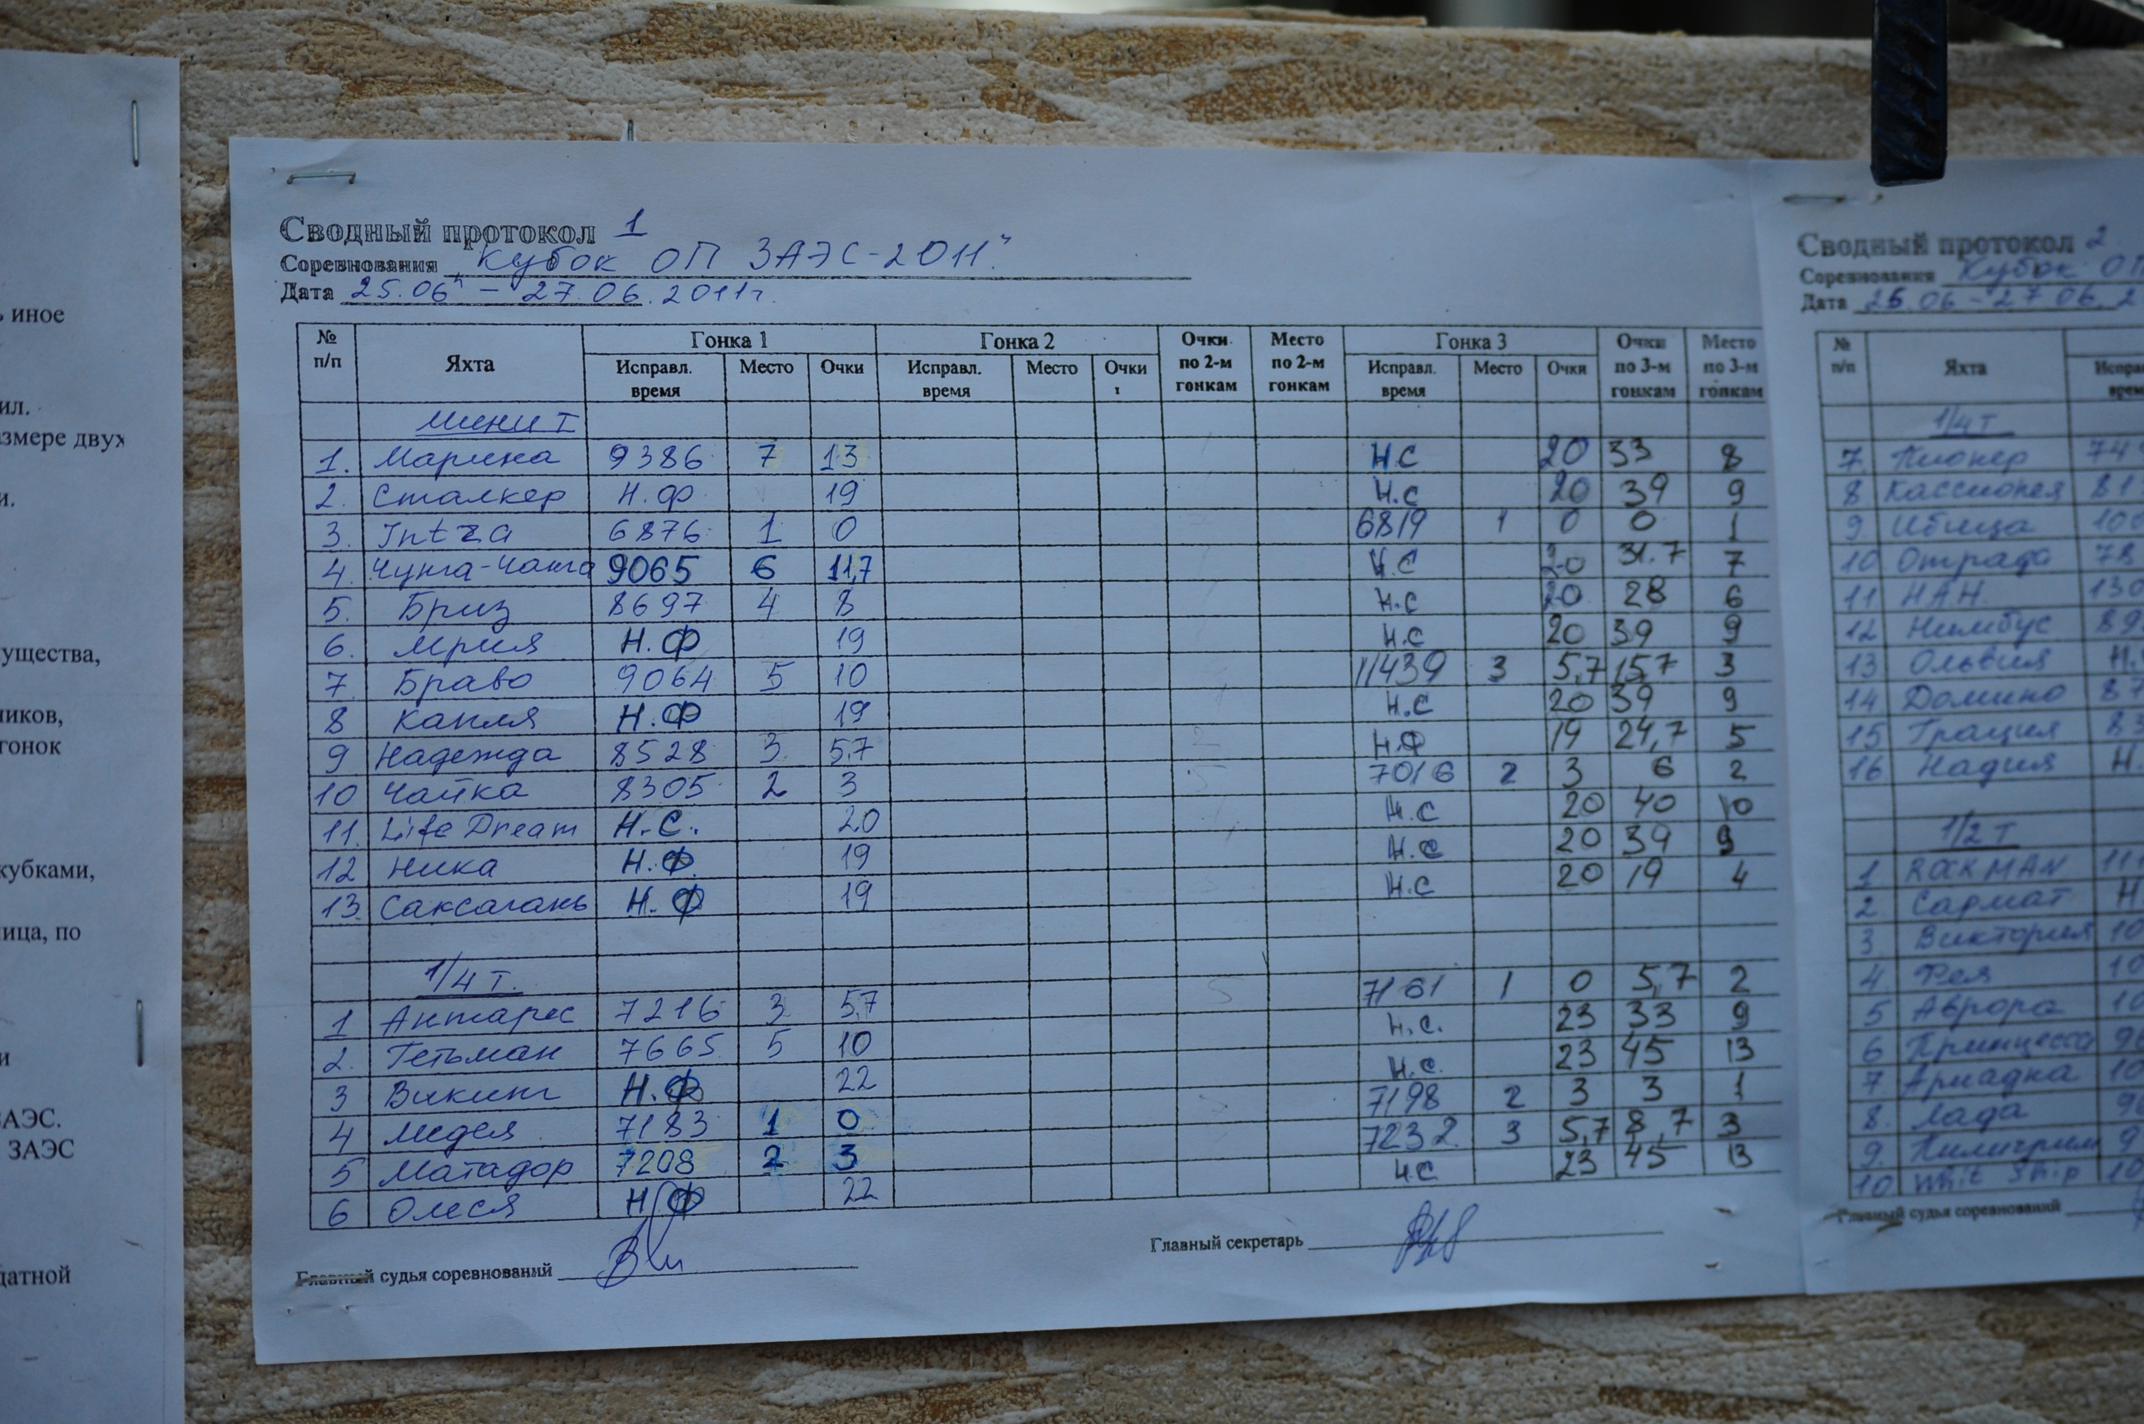 ь иное
ил.
азмере двух
и.
ущества,
ников,
гонок
кубками,
ница, по
и
ЗАЭС.
ЗАЭС
датной
Сводный протокол 1
Соревнования "Кубок ОП ЗАЭС-2011"
Дата 25.06 – 27.06.2011г.
№ п/п Яхта Гонка 1 Гонка 2 Очки по 2-м гонкам Место по 2-м гонкам Гонка 3 Очки по 3-м гонкам Место по 3-м гонкам
Исправл. время Место Очки Исправл. время Место Очки Исправл. время Место Очки
Мини Т
1. Марина 9386 7 13 Н.С 20 33 8
2. Сталкер Н.Ф 19 Н.С 20 39 9
3. Intza 6876 1 0 6819 1 0 0 1
4. Чунга-Чанга 9065 6 11,7 Н.С 20 31.7 7
5. Бриз 8697 4 8 Н.С 20 28 6
6. Мрия Н.Ф 19 Н.С 20 39 9
7. Браво 9064 5 10 11439 3 5,7 15,7 3
8 Капля Н.Ф 19 Н.С 20 39 9
9 Надежда 8528 3 5,7 Н.Ф 19 24,7 5
10 Чайка 8305 2 3 7016 2 3 6 2
11. Life Dream Н.С. 20 Н.С 20 40 10
12 Ника Н.Ф. 19 Н.С 20 39 9
13. Саксагань Н.Ф 19 Н.С 20 19 4
1/4 Т.
1 Антарес 7216 3 5,7 7161 1 0 5,7 2
2. Гетьман 7665 5 10 Н.С. 23 33 9
3 Викинг Н.Ф 22 Н.С. 23 45 13
4 Медея 7183 1 0 7198 2 3 3 1
5 Матадор 7208 2 3 7232 3 5,7 8,7 3
6 Олеся Н.Ф 22 Н.С 23 45 13
Главный судья соревнований
Главный секретарь
Сводный протокол 2
Соревнования Кубок ОП
Дата 25.06 – 27 06.2
№ п/п Яхта
1/4 Т
7. Пионер 74
8 Кассиопея 81
9. Ибица 100
10 Отрада 78
11 НАН. 130
12 Нимбус 89
13 Ольвия Н.
14 Домино 87
15 Грация 83
16 Надия Н.
1/2 Т
1 ROXMAN 11
2 Сармат Н
3 Виктория 10
4. Рея 10
5 Аврора 10
6 Принцесса 96
7 Ариадна 10
8. Лада 96
9. Пилигрим 9
10 Whit Ship 10
Главный судья соревнований